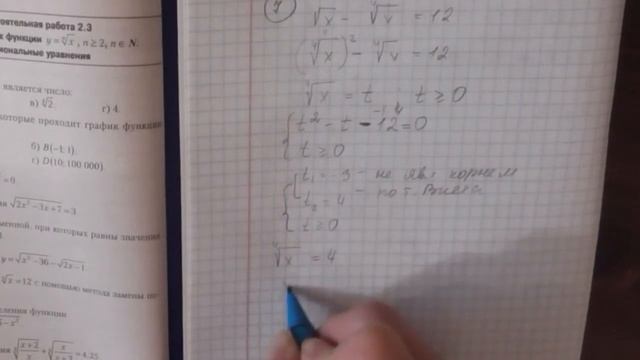 оятельная работа 2.3
к функции y = ⁿ√x, n ≥ 2, n ∈ N.
иональные уравнения
является число:
в) ⁴√2. г) 4.
которые проходит график функции
б) B(-1; 1).
г) D(10; 100 000).
= 0.
√(2x² - 3x + 7) = 3
менной, при которых равны значения
y = √(x² - 36) - √(2x - 1)
√x = 12 с помощью метода замены пе-
деления функции
(x + 2)/x + x/(x + 2) = 4,25.
7
√x - ⁴√x = 12
(⁴√x)² - ⁴√x = 12
⁴√x = t t ≥ 0
t² - t - 12 = 0
t ≥ 0
t₁ = -3 - не явл корнем
t₂ = 4 - по т. Виета
t ≥ 0
⁴√x = 4